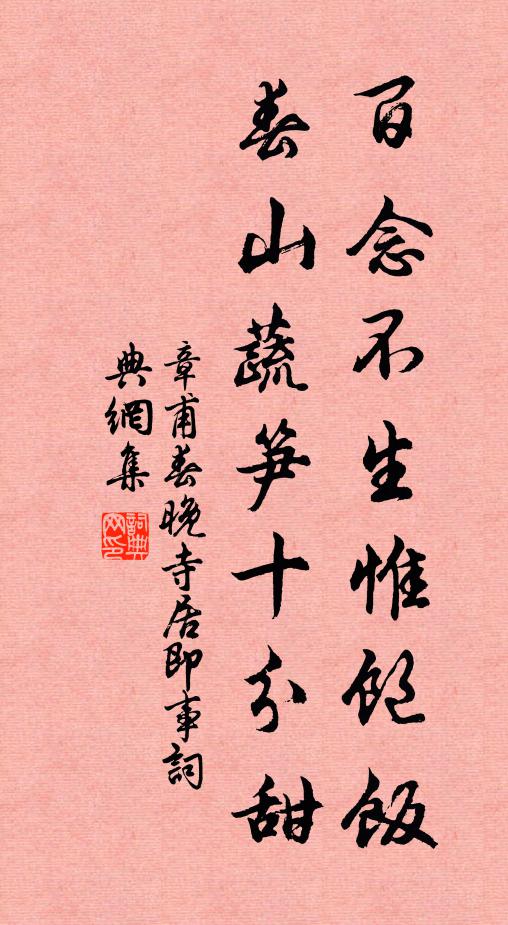 百念不生惟飽飯
春山蔬笋十分甜
章甫春晚寺居即事詞
典網集
詞典網印